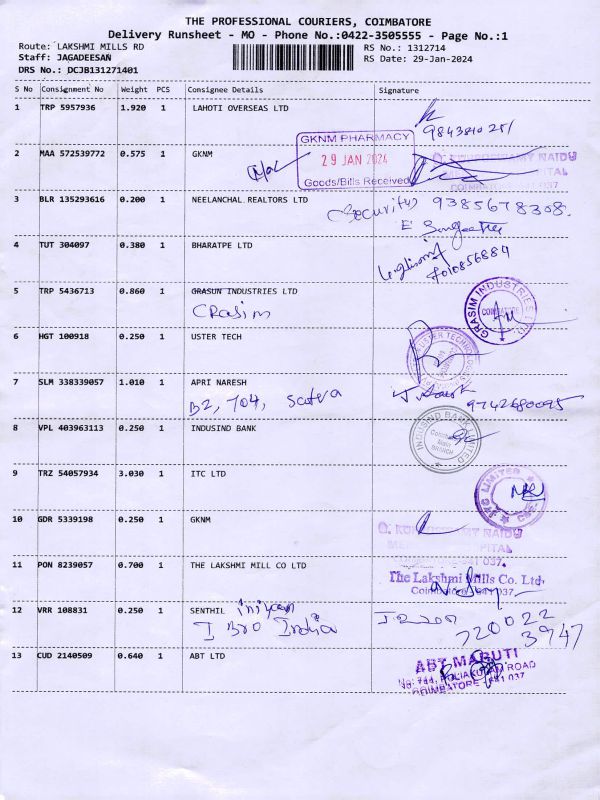 THE PROFESSIONAL COURIERS, COIMBATORE
Delivery Runsheet - MO - Phone No.:0422-3505555 - Page No.:1
Route: LAKSHMI MILLS RD RS No.: 1312714
Staff: JAGADEESAN RS Date: 29-Jan-2024
DRS No.: DCJB131271401
S No Consignment No Weight PCS Consignee Details Signature
1 TRP 5957936 1.920 1 LAHOTI OVERSEAS LTD
GKNM PHARMACY
29 JAN 2024
Goods/Bills Received
2 MAA 572539772 0.575 1 GKNM
3 BLR 135293616 0.200 1 NEELANCHAL REALTORS LTD
Security 9385678308.
4 TUT 304097 0.380 1 BHARATPE LTD
7010856884
5 TRP 5436713 0.860 1 GRASUN INDUSTRIES LTD
Grasim
GRASIM INDUSTRIES LTD
6 HGT 100918 0.250 1 USTER TECH
7 SLM 338339057 1.010 1 APRI NARESH
B2, 704, Sutera
9742680095
8 VPL 403963113 0.250 1 INDUSIND BANK
INDUSIND BANK LIMITED
BRANCH
9 TRZ 54057934 3.030 1 ITC LTD
LIMITED
10 GDR 5339198 0.250 1 GKNM
11 PON 8239057 0.700 1 THE LAKSHMI MILL CO LTD
The Lakshmi Mills Co. Ltd.
Coimbatore - 641 037
12 VRR 108831 0.250 1 SENTHIL iniyan
I Bro India
720022
3947
13 CUD 2140509 0.640 1 ABT LTD
ABT MARUTI
COIMBATORE - 641 037